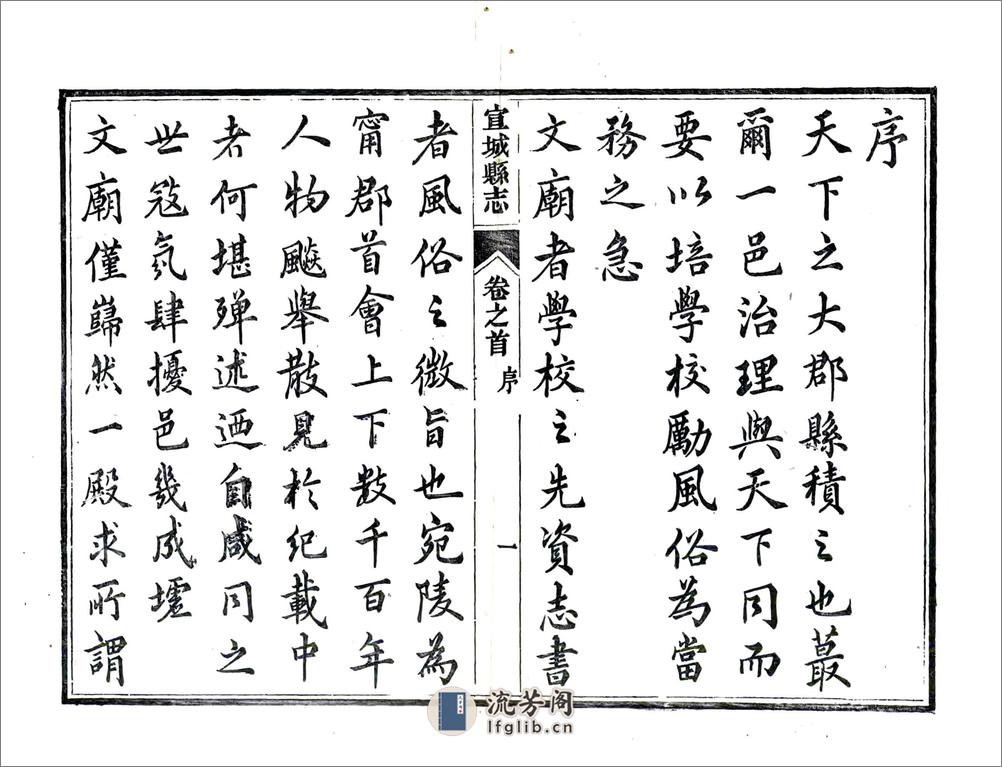 序
天下之大郡縣積之也蕞
爾一邑治理與天下同而
要以培學校勵風俗為當
務之急
文廟者學校之先資志書
宣城縣志
卷之首
序
一
者風俗之微旨也宛陵為
甯郡首會上下數千百年
人物飈舉散見於紀載中
者何堪殫述迺自咸同之
世寇氛肆擾邑幾成墟
文廟僅巋然一殿求所謂
流芳阁
lfglib.cn